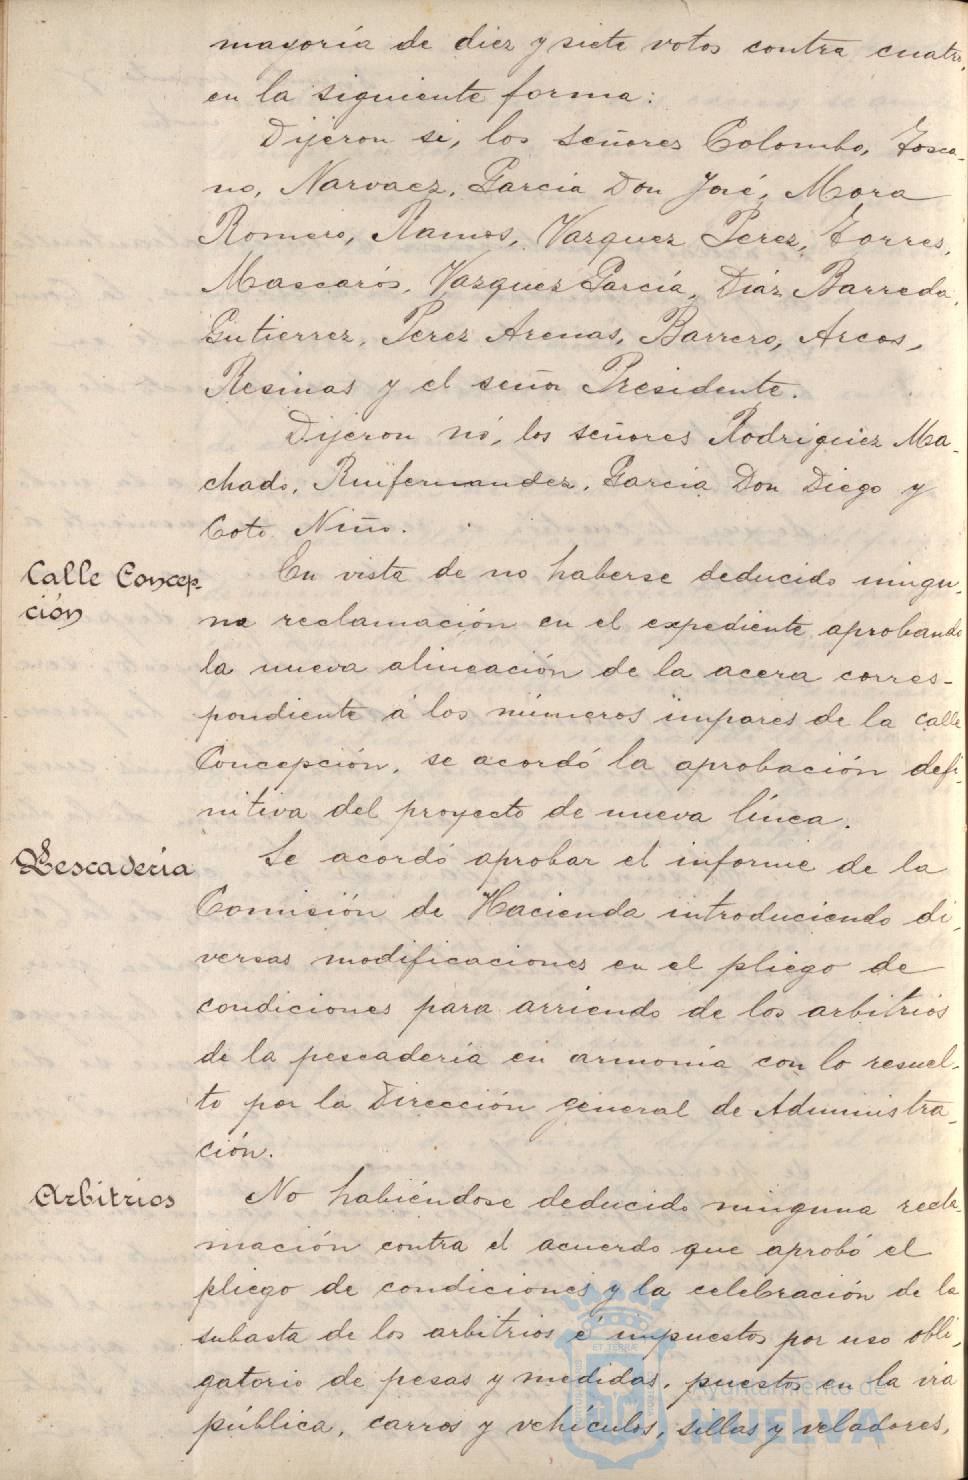 mayoría de diez y siete votos contra cuatro,
en la siguiente forma:
Dijeron si, los señores Colombo, Tosca-
no, Narvaez, Garcia Don José, Mora
Romero, Ramos, Vazquez Perez, Torres,
Mascarós, Vazquez García, Díaz Barreda,
Gutierrez, Perez Arenas, Barrero, Arcos,
Resinas y el señor Presidente.
Dijeron nó, los señores Rodriguez Ma-
chado, Ruifernandez, Garcia Don Diego y
Coto Niño.
Calle Concep-
ción
En vista de no haberse deducido ningu-
na reclamación en el expediente aprobando
la nueva alineación de la acera corres-
pondiente á los números impares de la calle
Concepción, se acordó la aprobación defi-
nitiva del proyecto de nueva línea.
Pescadería
Se acordó aprobar el informe de la
Comisión de Hacienda introduciendo di-
versas modificaciones en el pliego de
condiciones para arriendo de los arbitrios
de la pescadería en armonía con lo resuel-
to por la Dirección general de Administra-
ción.
Arbitrios
No habiéndose deducido ninguna recla-
mación contra el acuerdo que aprobó el
pliego de condiciones y la celebración de la
subasta de los arbitrios é impuestos por uso obli-
gatorio de pesas y medidas, puestos en la vía
pública, carros y vehículos, sillas y veladores,
ET TERRÆ
Ayuntamiento de
HUELVA